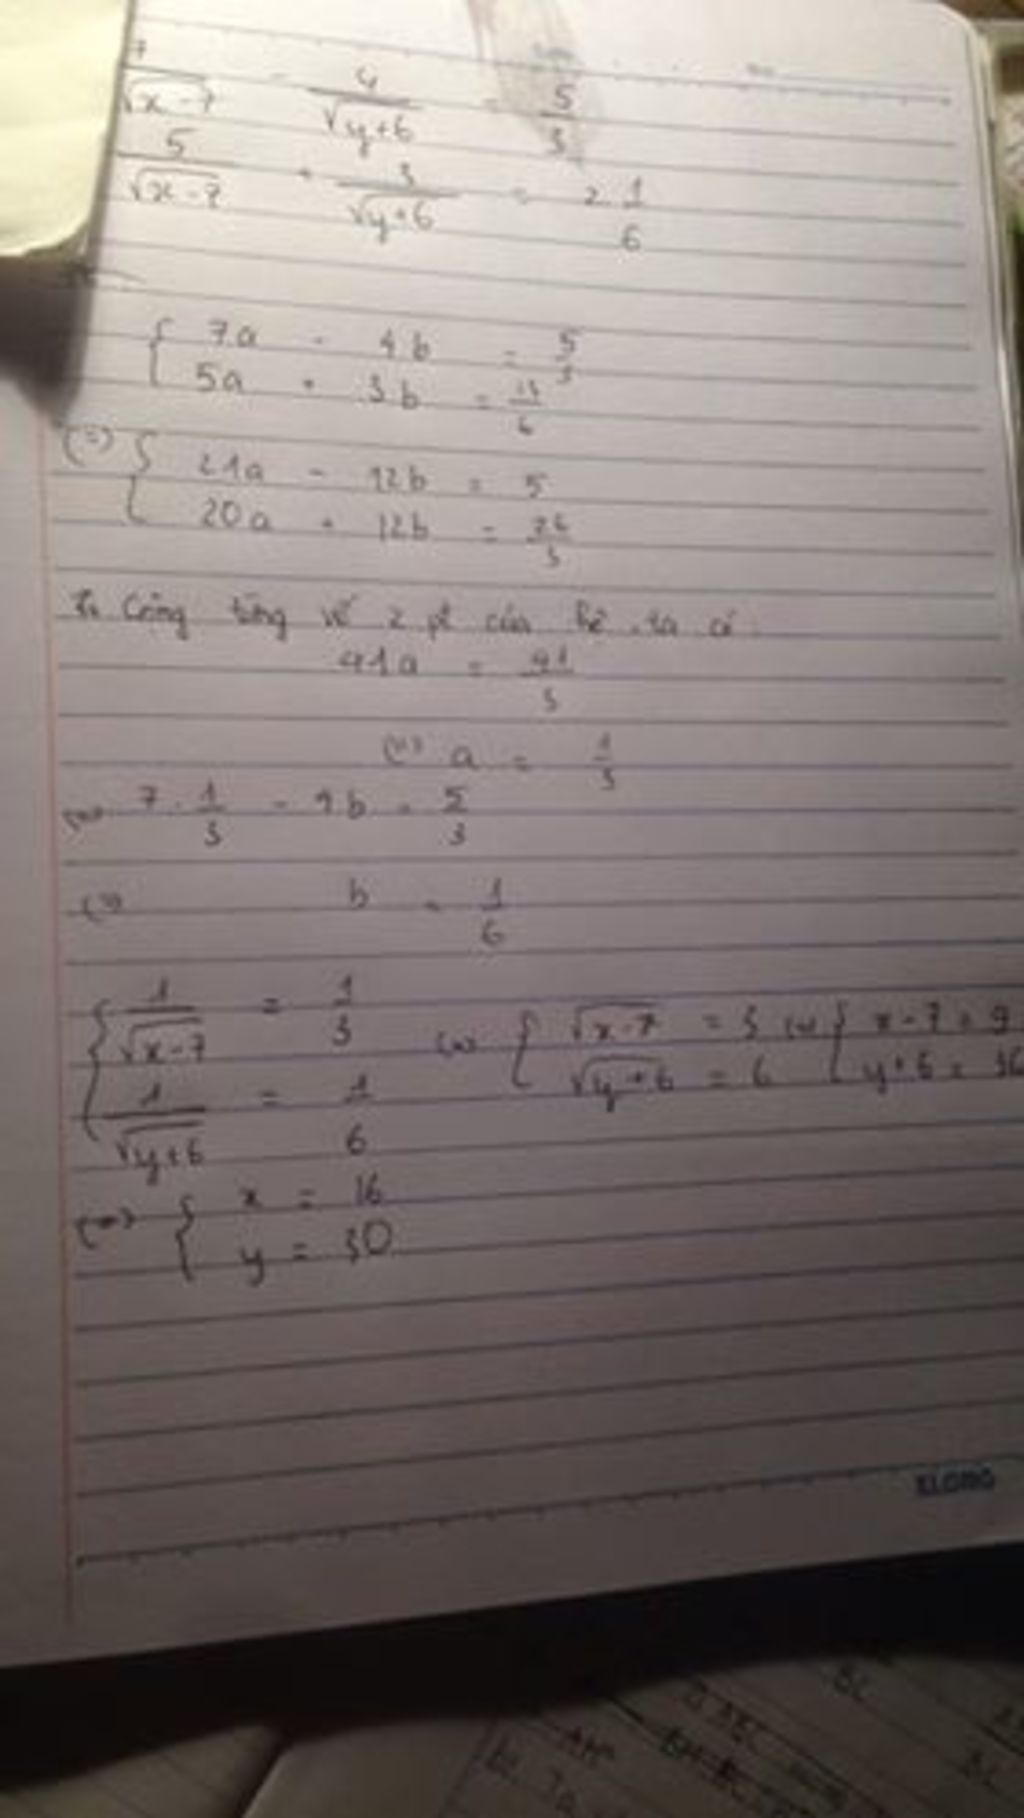 7/√(x-7) - 4/√(y+6) = 5/3
5/√(x-7) + 3/√(y+6) = 2 1/6
{ 7a - 4b = 5/3
5a + 3b = 13/6
(=) { 21a - 12b = 5
20a + 12b = 26/3
Cộng từng vế 2 pt của hệ, ta có
41a = 41/3
(=) a = 1/3
(=) 7 . 1/3 - 4b = 5/3
(=) b = 1/6
{ 1/√(x-7) = 1/3
1/√(y+6) = 1/6
(=) { √(x-7) = 3
√(y+6) = 6
(=) { x-7 = 9
y+6 = 36
(=) { x = 16
y = 30
KLONG